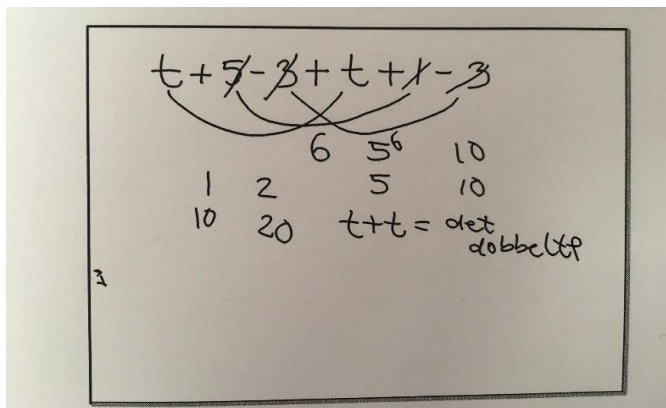 t + 5 - 3 + t + 1 - 3
6 5⁶ 10
1 2 5 10
10 20 t+t = det
dobbelte